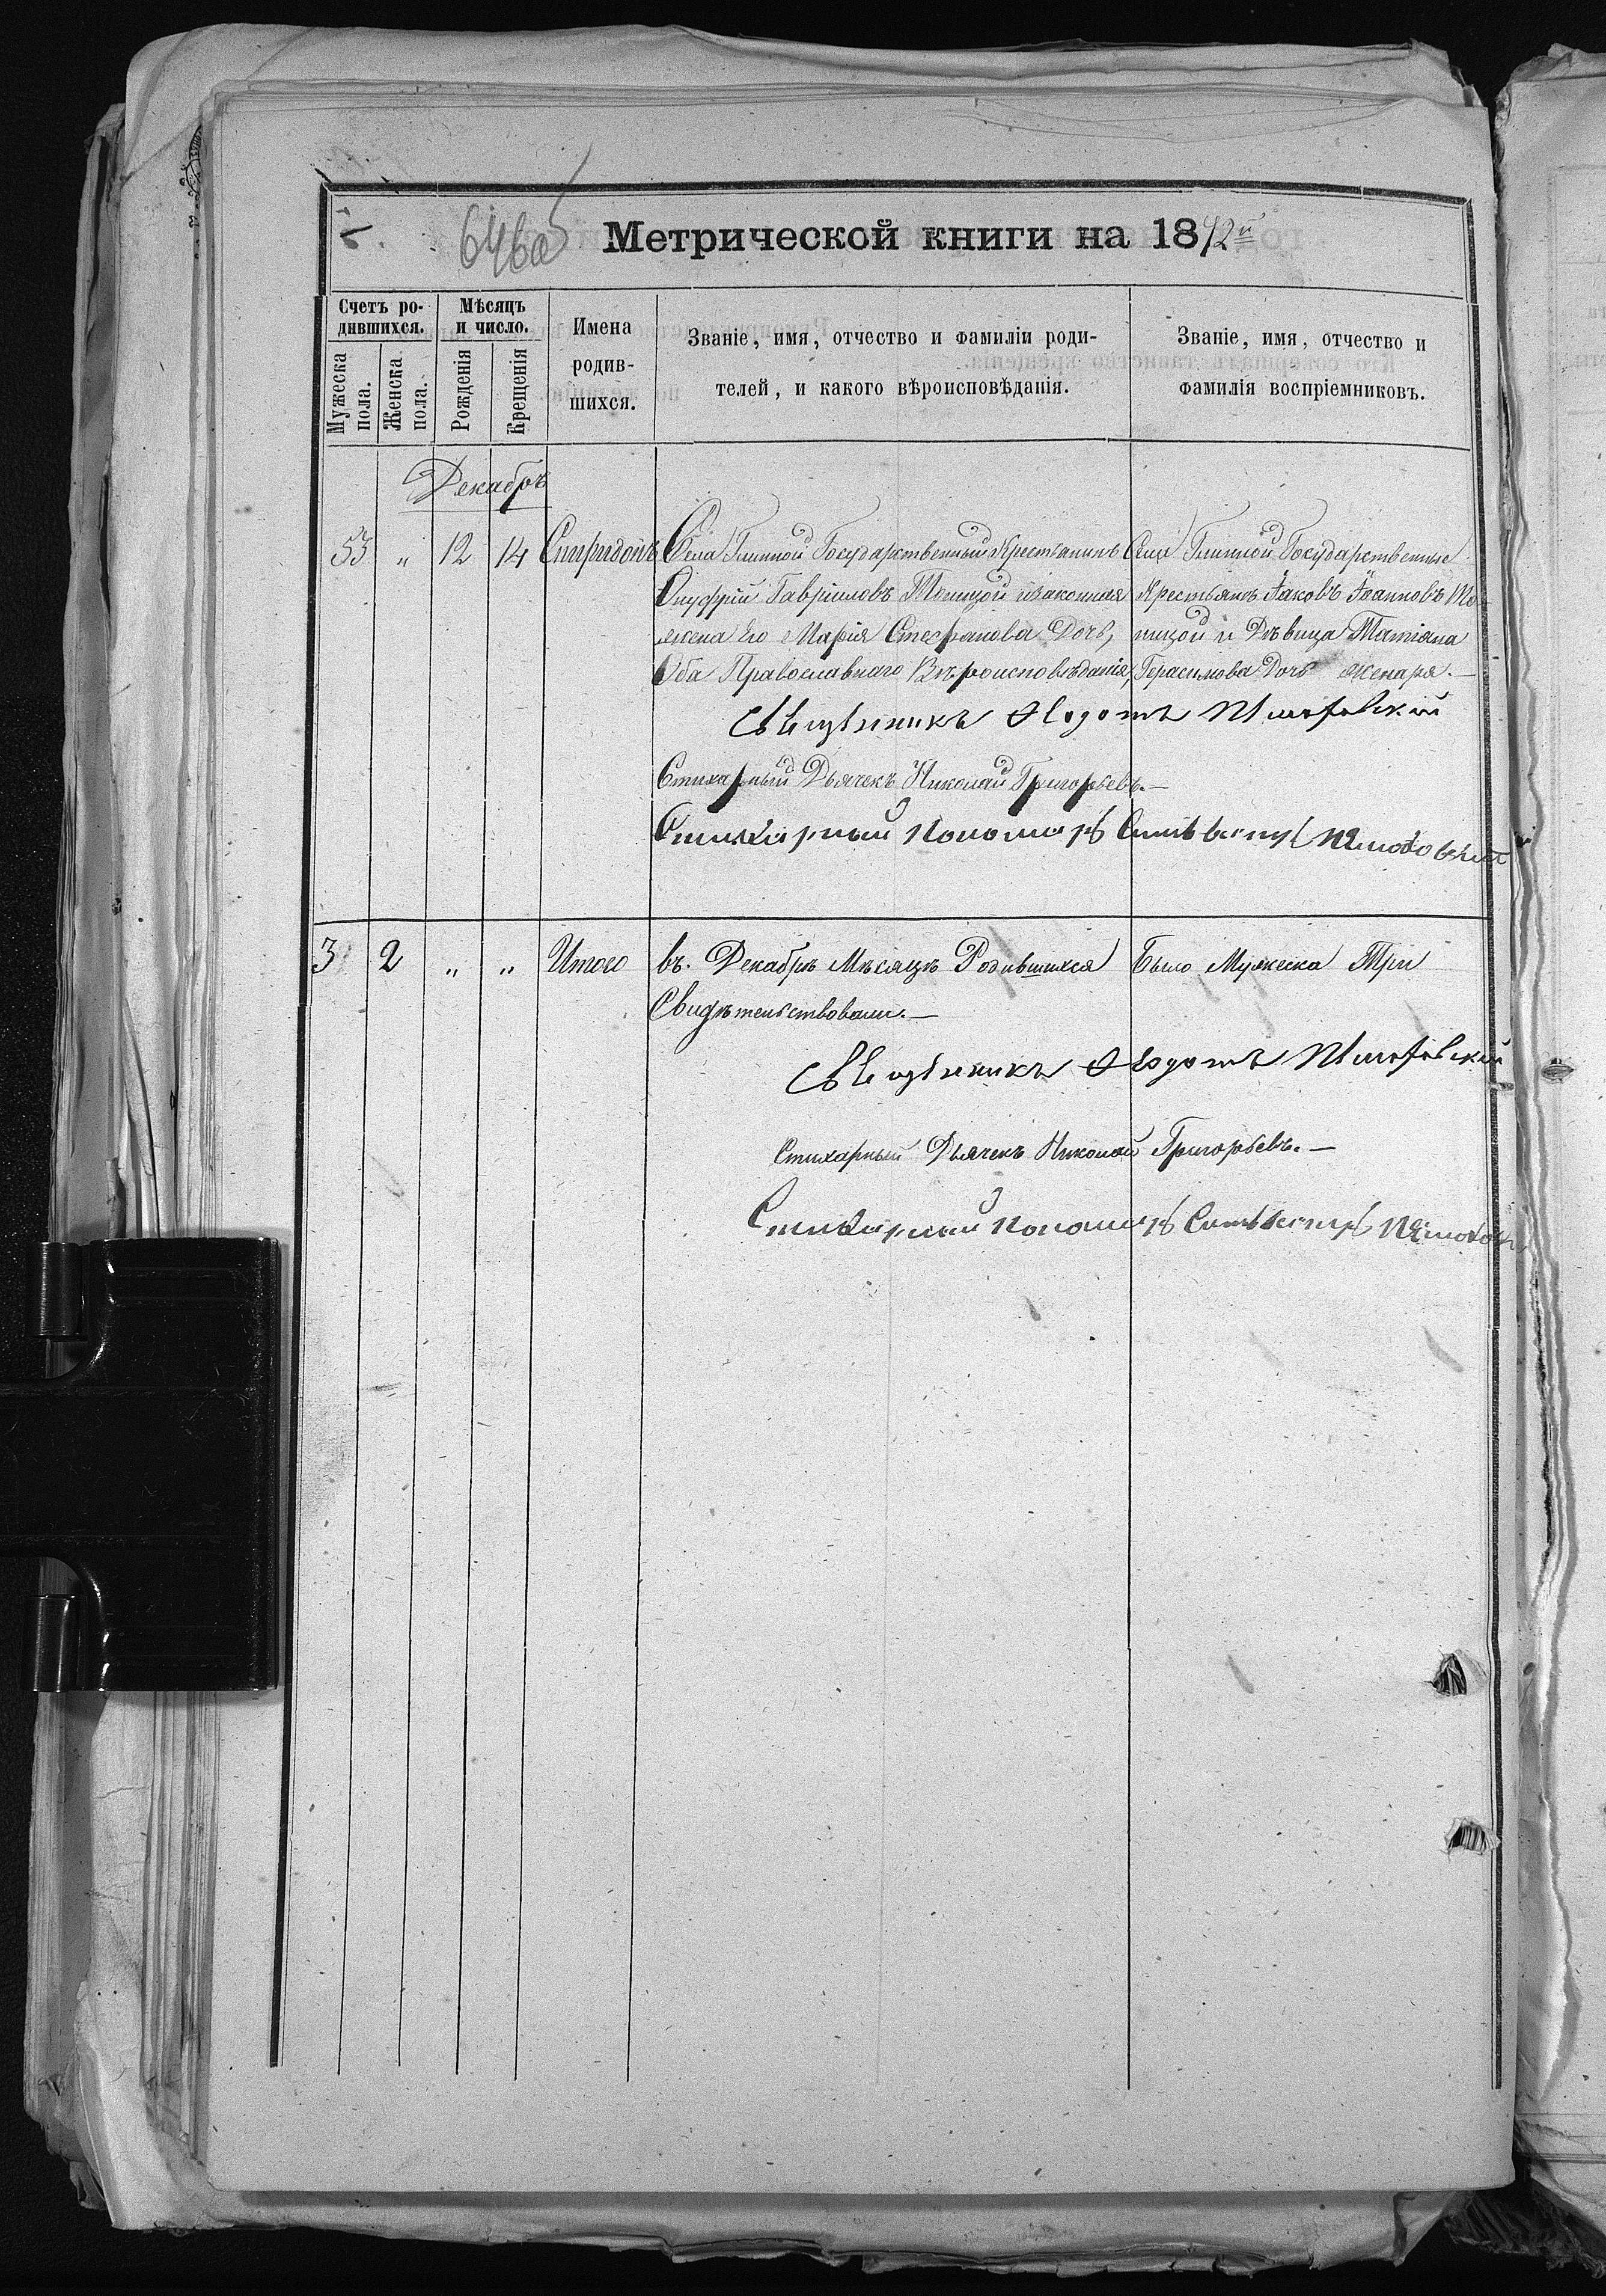 646 об
Метрической книги на 1872й
Счетъ ро-
дившихся.
Мѣсяцъ
и число.
Имена
родив-
шихся.
Званіе, имя, отчество и фамиліи роди-
телей, и какого вѣроисповѣданія.
Званіе, имя, отчество и
фамилія воспріемниковъ.
Мужеска
пола.
Женска
пола.
Рожденія
Крещенія
Декабрь
53 " 12 14 Спиридонъ
Села Глинной Государственный Крестьянинъ
Онуфрій Гавріиловъ изаконная
жена Его Марія Стефанова Дочь,
Оба Православнаго Вѣроисповѣданія,
Села Глинной Государственные
Крестьяне Іаковъ Іоанновъ
и Дѣвица Татіана
Герасимова Дочь Женаря.—
Священникъ Ѳеодотъ
Стихарный Дьячекъ Николай Григорьевъ.—
Стихарный Пономарь Сильвестръ
3 2 " " Итого въ Декабрѣ Мѣсяцѣ Родившихся Было Мужеска Три
Свидѣтельствовали.—
Священникъ Ѳеодотъ
Стихарный Дьячекъ Николай Григорьевъ.—
Стихарный Пономарь Сильвестръ